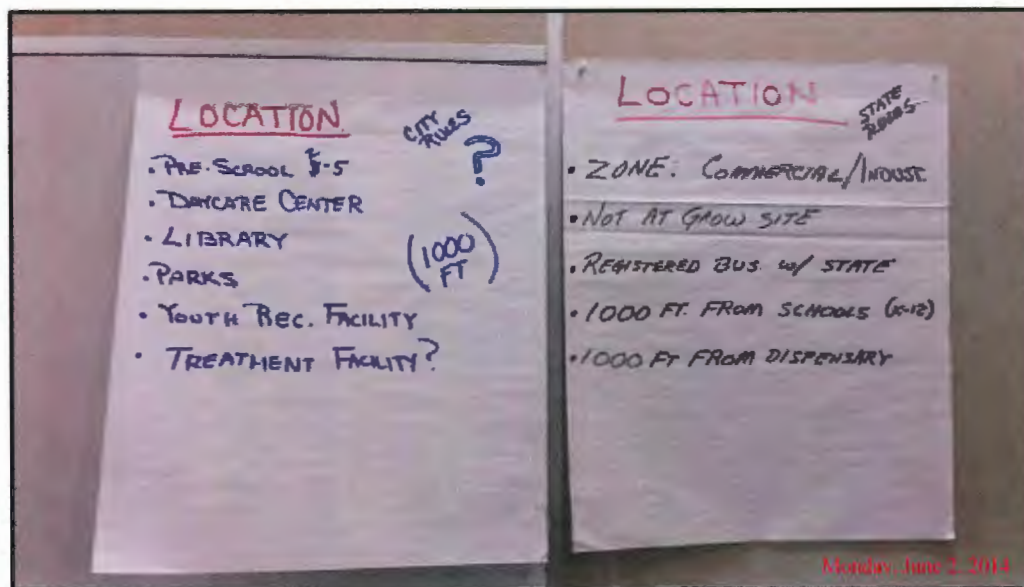 LOCATION
CITY RULES
?
• PRE-SCHOOL -5
• DAYCARE CENTER
• LIBRARY
(1000 FT)
• PARKS
• YOUTH REC. FACILITY
• TREATMENT FACILITY?
LOCATION
STATE RULES
• ZONE: COMMERCIAL/INDUST.
• NOT AT GROW SITE
• REGISTERED BUS. w/ STATE
• 1000 FT. FROM SCHOOLS (K-12)
• 1000 FT FROM DISPENSARY
Monday, June 2, 2014